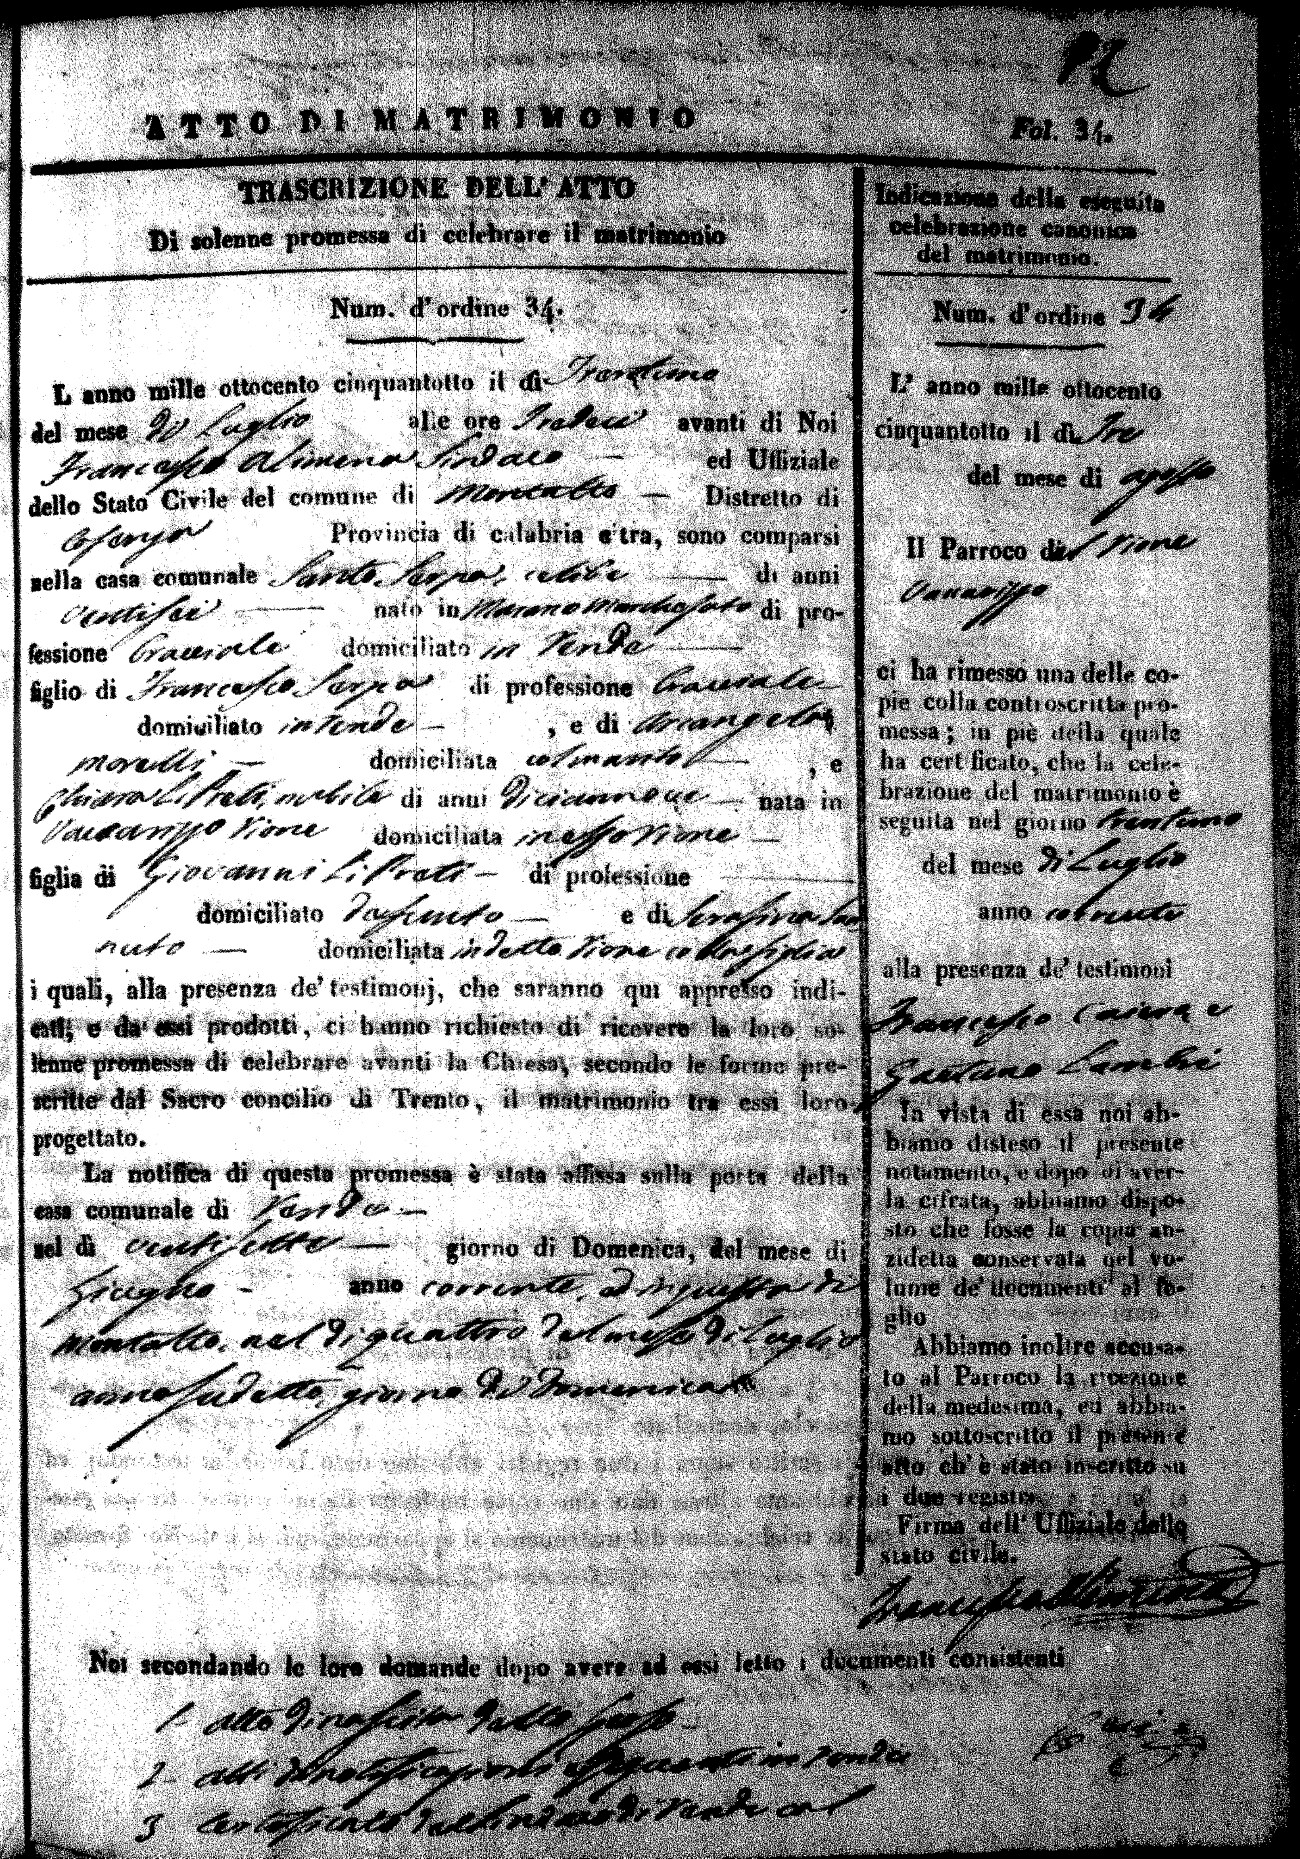 ATTO DI MATRIMONIO
Fol. 34.
TRASCRIZIONE DELL' ATTO
Di solenne promessa di celebrare il matrimonio
Num. d'ordine 34.
L anno mille ottocento cinquantotto il dì Trentuno
del mese di Luglio alle ore Tredeci avanti di Noi
Francesco Alimena Sindaco ed Uffiziale
dello Stato Civile del comune di Montalto Distretto di
Cosenza Provincia di calabria citra, sono comparsi
nella casa comunale Santo Serpa, celibe di anni
ventisei nato in Marano Marchesato di pro-
fessione Bracciale domiciliato in Rende
figlio di Francesco Serpa di professione Bracciale
domiciliato in Rende , e di Arcangela
Morelli domiciliata , e
Chiara Li Preti, nubile di anni diciannove nata in
Vaccarizzo Rione domiciliata in esso Rione
figlia di Giovanni Li Preti di professione
domiciliato e di Serafina
nuto domiciliata in detto Rione colla figlia
i quali, alla presenza de' testimonj, che saranno qui appresso indi-
cati, e da' essi prodotti, ci hanno richiesto di ricevere la loro so-
lenne promessa di celebrare avanti la Chiesa, secondo le forme pre-
scritte dal Sacro concilio di Trento, il matrimonio tra essi loro
progettato.
La notifica di questa promessa è stata affissa sulla porta della
casa comunale di Rende
nel dì ventisette giorno di Domenica, del mese di
Giugno anno corrente, ed in questa di
Montalto, nel dì quattro del mese di Luglio
anno sudetto, giorno di Domenica
Noi secondando le loro domande dopo avere ad essi letto i documenti consistenti
1 atto di nascita dello sposo
2 atti di notificazioni eseguite in Rende
3 certificato del Sindaco di Rende col
Indicazione della eseguita
celebrazione canonica
del matrimonio.
Num. d'ordine 34
L' anno mille ottocento
cinquantotto il dì Tre
del mese di agosto
Il Parroco del Rione
Vaccarizzo
ci ha rimesso una delle co-
pie colla controscritta pro-
messa; in piè della quale
ha certificato, che la cele-
brazione del matrimonio è
seguita nel giorno trentuno
del mese di Luglio
anno corrente
alla presenza de' testimoni
Francesco Caiera e
Gaetano Lambri
In vista di essa noi ab-
biamo disteso il presente
notamento, e dopo di aver-
la cifrata, abbiamo dispo-
sto che fosse la copia an-
zidetta conservata nel vo-
lume de' documenti al fo-
glio
Abbiamo inoltre accusa-
to al Parroco la ricezione
della medesima, ed abbia-
mo sottoscritto il presente
atto ch' è stato inscritto su
i due registri.
Firma dell' Uffiziale dello
stato civile.
Francesco Alimena